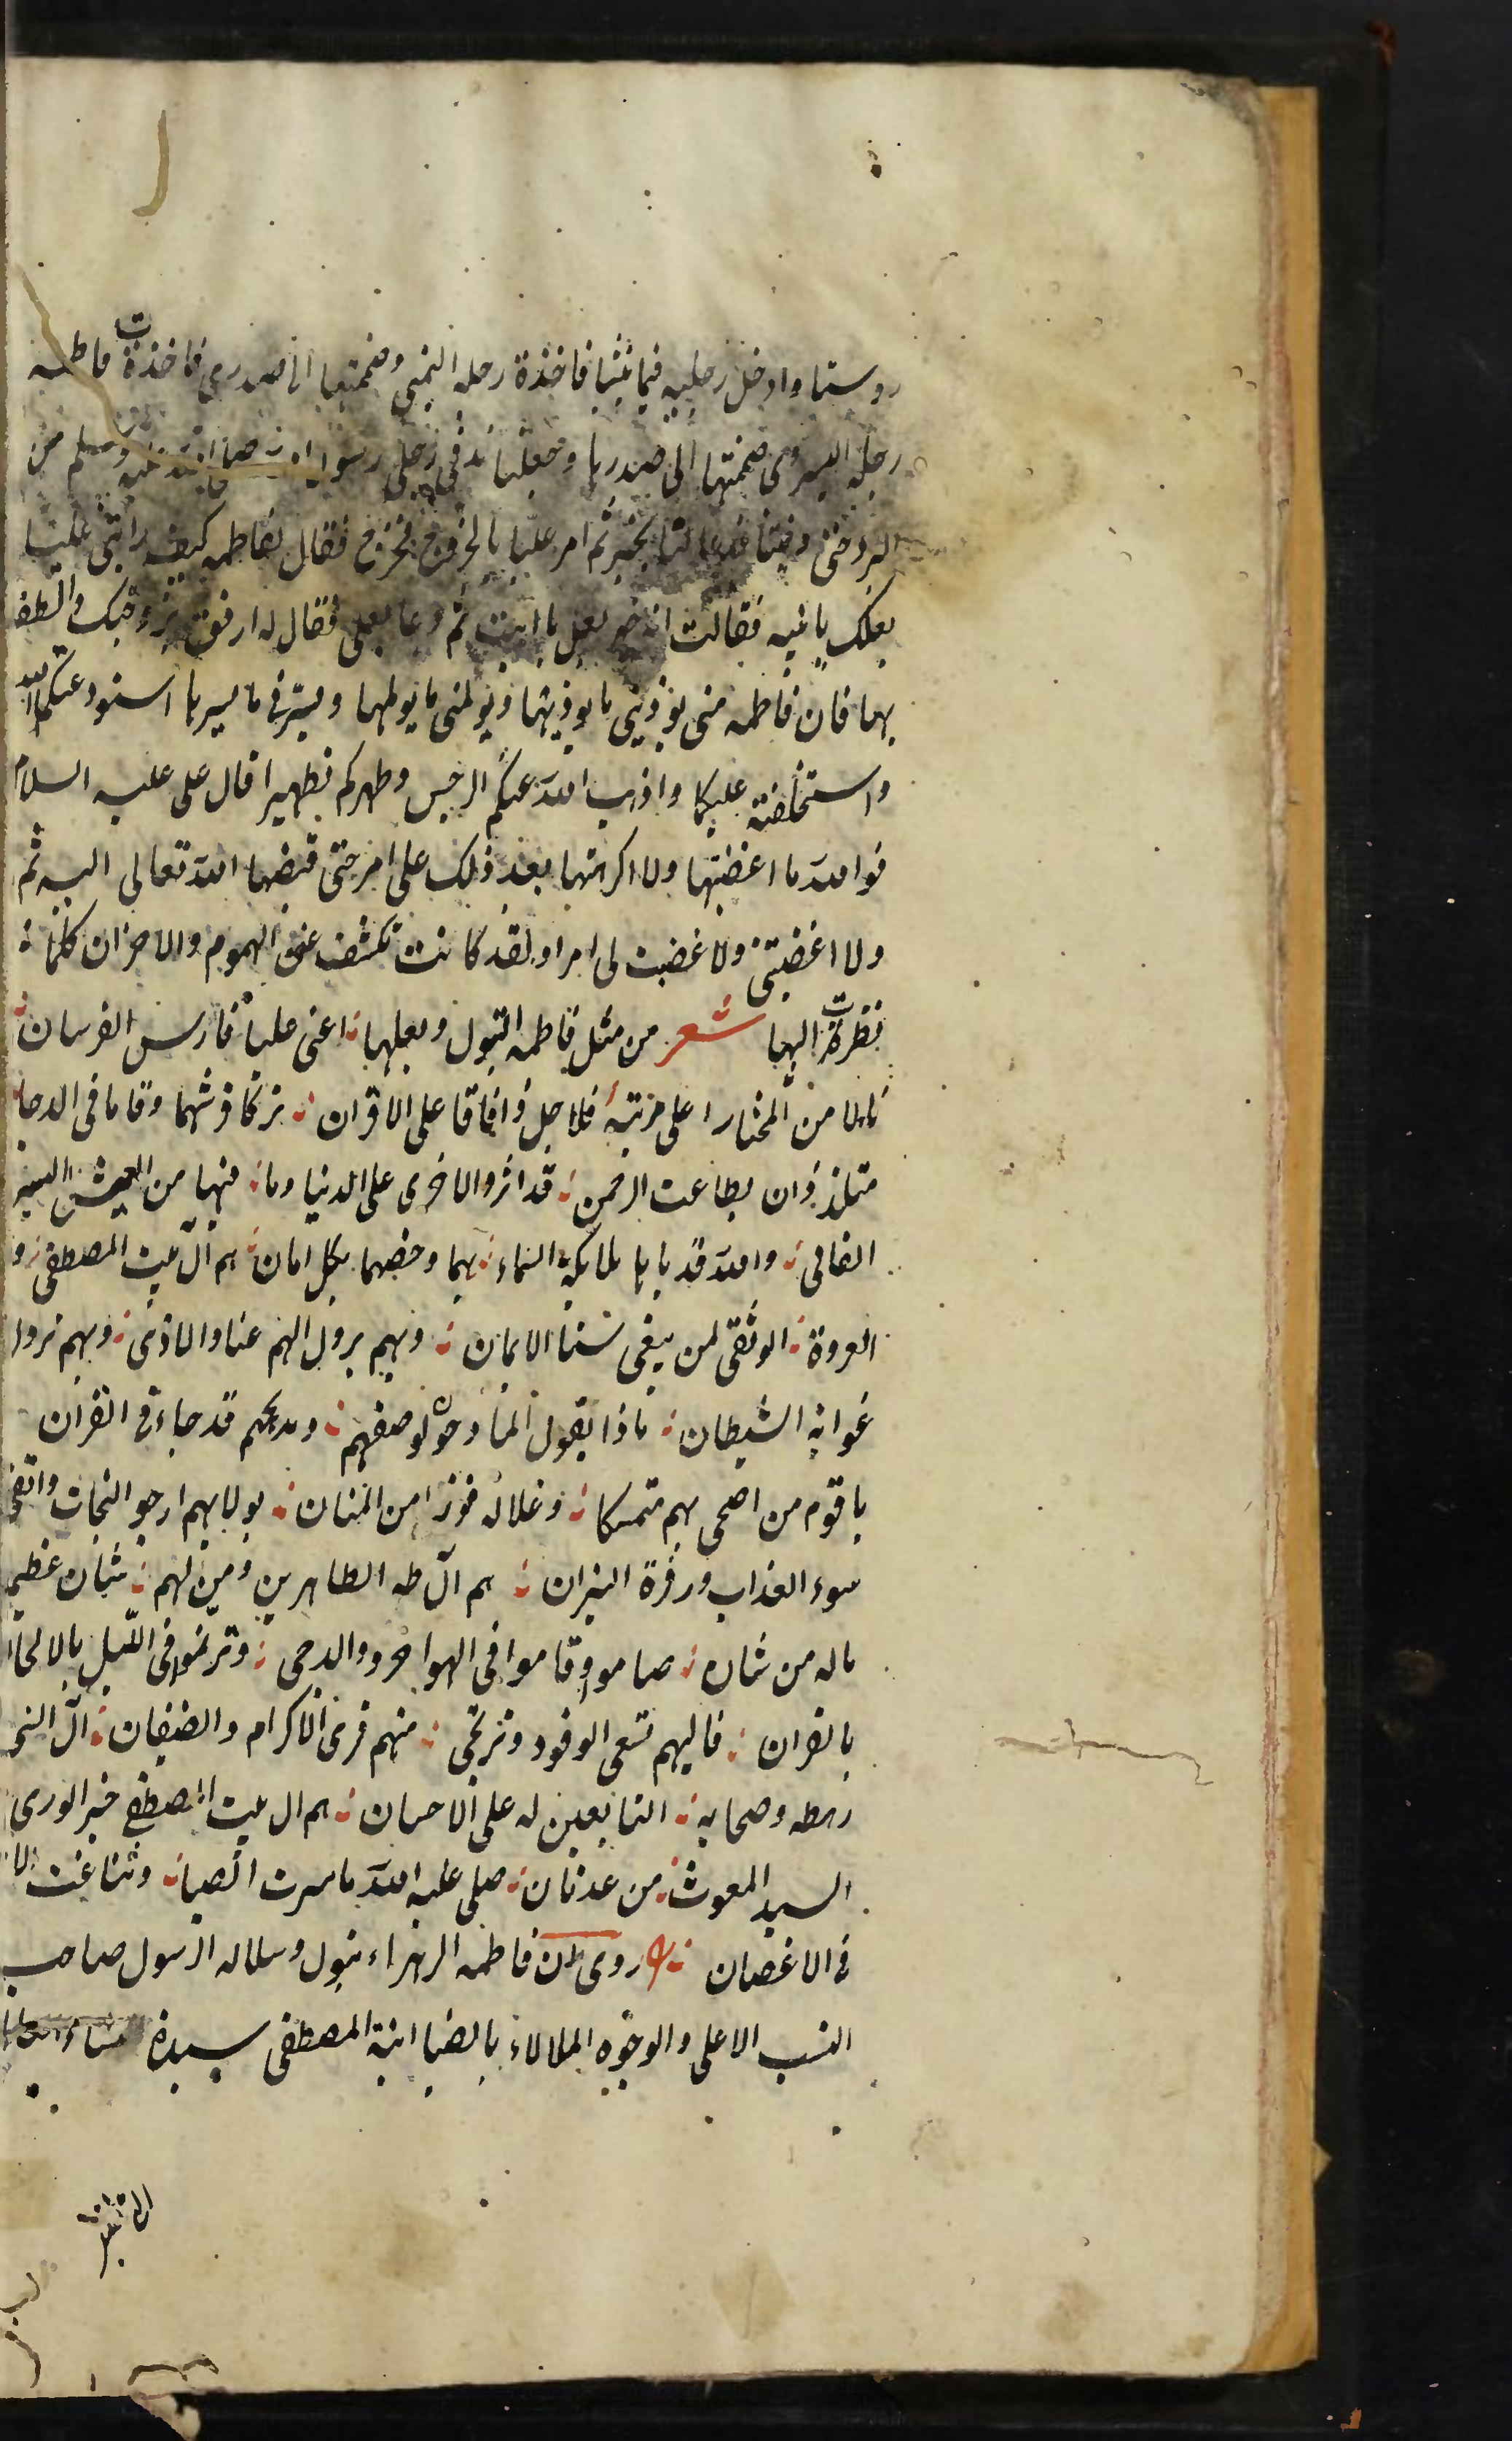 روسنا وادخل رجليه فيما بيننا فاخذة رجله اليمنى وضممتها الى صدرى فاخذة ت فاطمه
رجله اليسرى ضمتها الى صدرها وجعلنا ندفى رجلى رسول الله صلى الله عليه وسلم من
البرد حتى دفيتا فدعا لنا بخير ثم امر عليا بالخروج فخرج فقال لفاطمه كيف رايتى عليا
بعلك يا بنيه فقالت انه خير بعل يا ابت ثم دعا بعلى فقال له ارفق بزوجتك والطف
بها فان فاطمه منى يوذينى ما يوذيها ويولمنى ما يولمها ويسرنى ما يسرها استودعتكما الله
واستخلفته عليكما واذهب الله عنكم الرجس وطهركم تطهيرا قال على عليه السلام
فوالله ما اغضبتها ولا اكرهتها بعد ذلك على امر حتى قبضها الله تعالى اليه ثم
ولا اغضبتنى ولا غضبت لى امرا ولقد كانت تكشف عنى الهموم والاحزان كلما
نظرة ت اليها شعر من مثل فاطمه البتول وبعلها اعنى عليا فارس الفرسان
نالا من المختار اعلى مزيته فلاجل ذا فاقا على الاقران تركا فرشهما وقاما فى الدجا
متلذذان بطاعت الرحمن قد اثروا الاخرى على الدنيا وما فيها من العيش
الفانى والله قد باها ملايكة السماء بهما وخصهما بكل امان هم آل بيت المصطفى و
العروة الوثقى لمن يبغى سنا الايمان وبهم يزول الهم عنا والاذى وبهم نزول
غواية الشيطان ماذا يقول المادحون لوصفهم ومديحهم قد جاء فى القران
يا قوم من اضحى بهم متمسكا وعلا له فوزا من المنان بولايهم ارجو النجات واتقى
سوء العذاب وزفرة النيران هم آل طه الطاهرين ومن لهم شان عظيم
ياله من شان صاموا وقاموا فى الهواجر والدجى وترنموا فى الليل بالالحان
بالقران فاليهم تسعى الوفود وترتجى منهم قرى الاكرام والضيفان آل النبى
رهطه وصحابه التابعين له على الاحسان هم ال بيت المصطفى خير الورى
السيد المعوث من عدنان صلى عليه الله ما سرت الصبا وتناغت
فى الاغصان روى ان فاطمه الزهراء بتول وسلاله الرسول صاحب
النسب الاعلى والوجوه الملالاء بالضيا ابنة المصطفى سيدة نساء